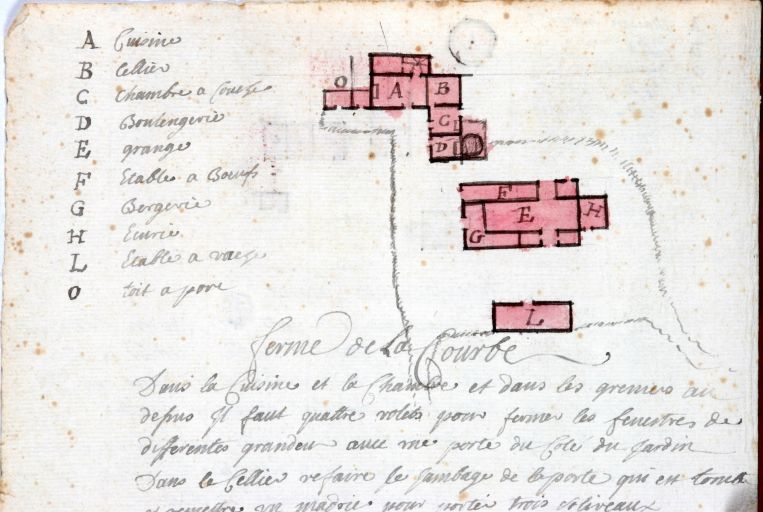 A Cuisine
B Cellier
C Chambre a Couche
D Boulengerie
E grange
F Etable a Boeufs
G Bergerie
H Ecurie
L Etable a vache
O toit a porc
O
A
B
C
D
F
E
H
G
L
ferme de La Courbe
Dans la Cuisine et la Chambre et dans les greniers au
depus Il faut quattre volets pour fermer les fenestres de
differentes grandeur avec une porte du Cote du Jardin
Dans le Cellier refaire le Jambage de la porte qui est
et remettre un madrie pour porter trois soliveaux